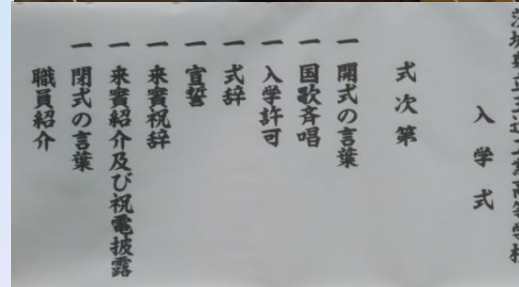 茨城県立玉造工業高等学校
入学式
式次第
一 開式の言葉
一 国歌斉唱
一 入学許可
一 式辞
一 宣誓
一 来賓祝辞
一 来賓紹介及び祝電披露
一 閉式の言葉
職員紹介